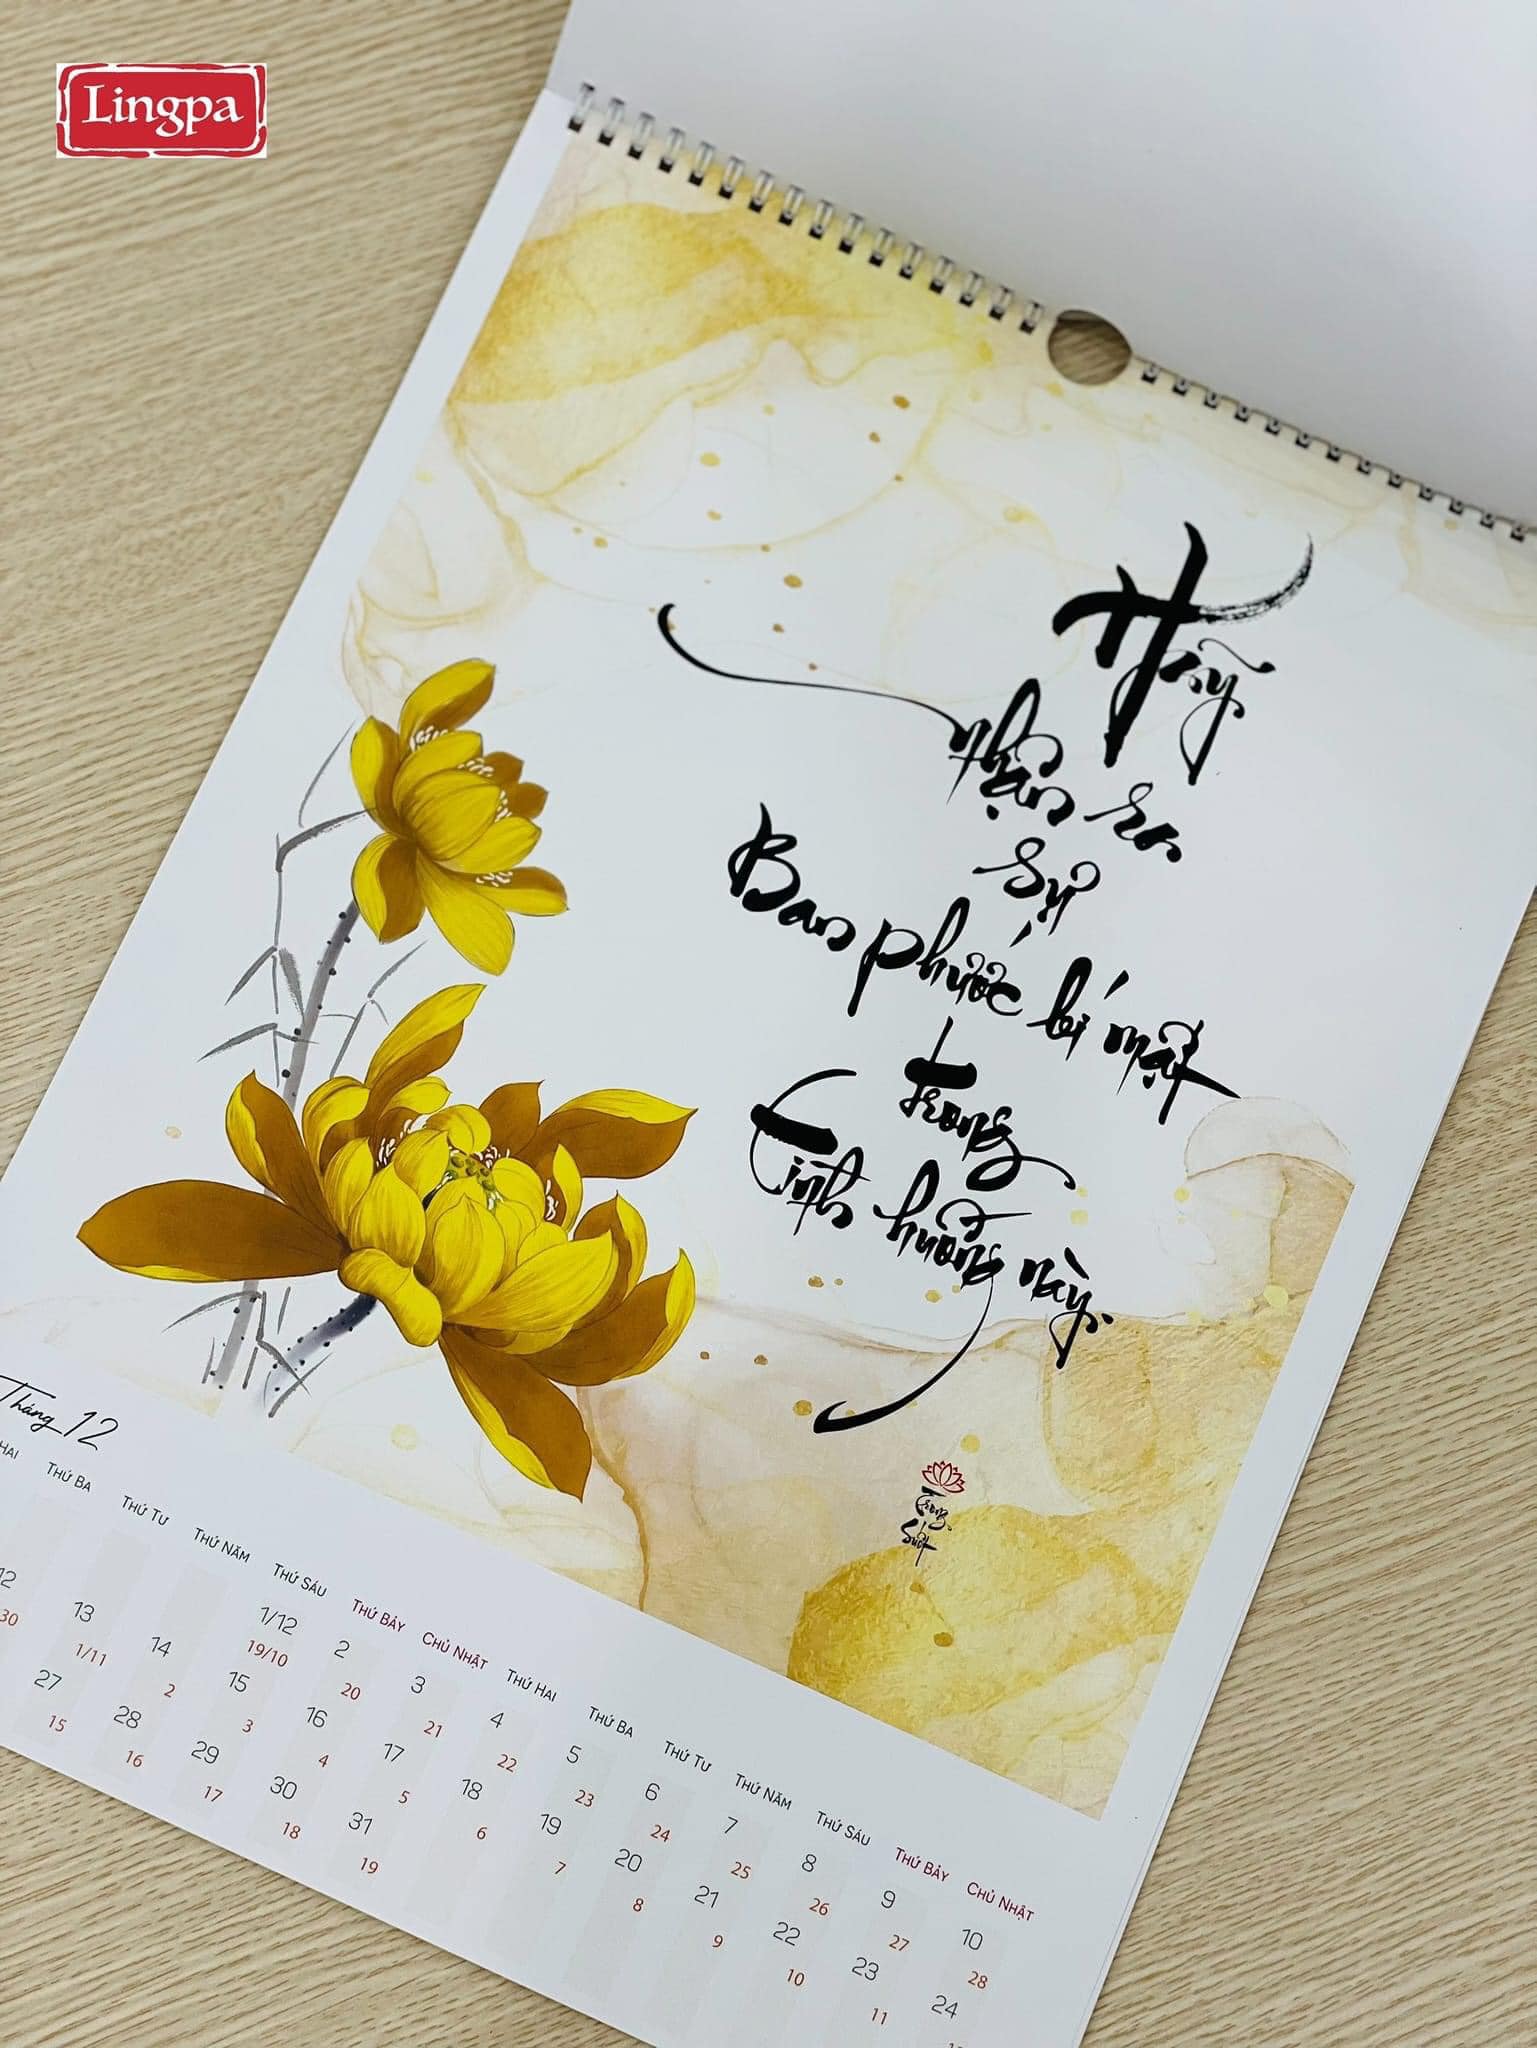 Lingpa
Hãy
nhận ra
sự
Ban phước bí mật
Trong
Tình huống này.
Trong
Suốt
Tháng 12
HAI THỨ BA THỨ TƯ THỨ NĂM THỨ SÁU THỨ BẢY CHỦ NHẬT THỨ HAI THỨ BA THỨ TƯ THỨ NĂM THỨ SÁU THỨ BẢY CHỦ NHẬT
1/12 2 3 4 5 6 7 8 9 10
19/10 20 21 22 23 24 25 26 27 28
12 13 14 15 16 17 18 19 20 21 22 23 24
30 1/11 2 3 4 5 6 7 8 9 10 11
27 28 29 30 31
15 16 17 18 19